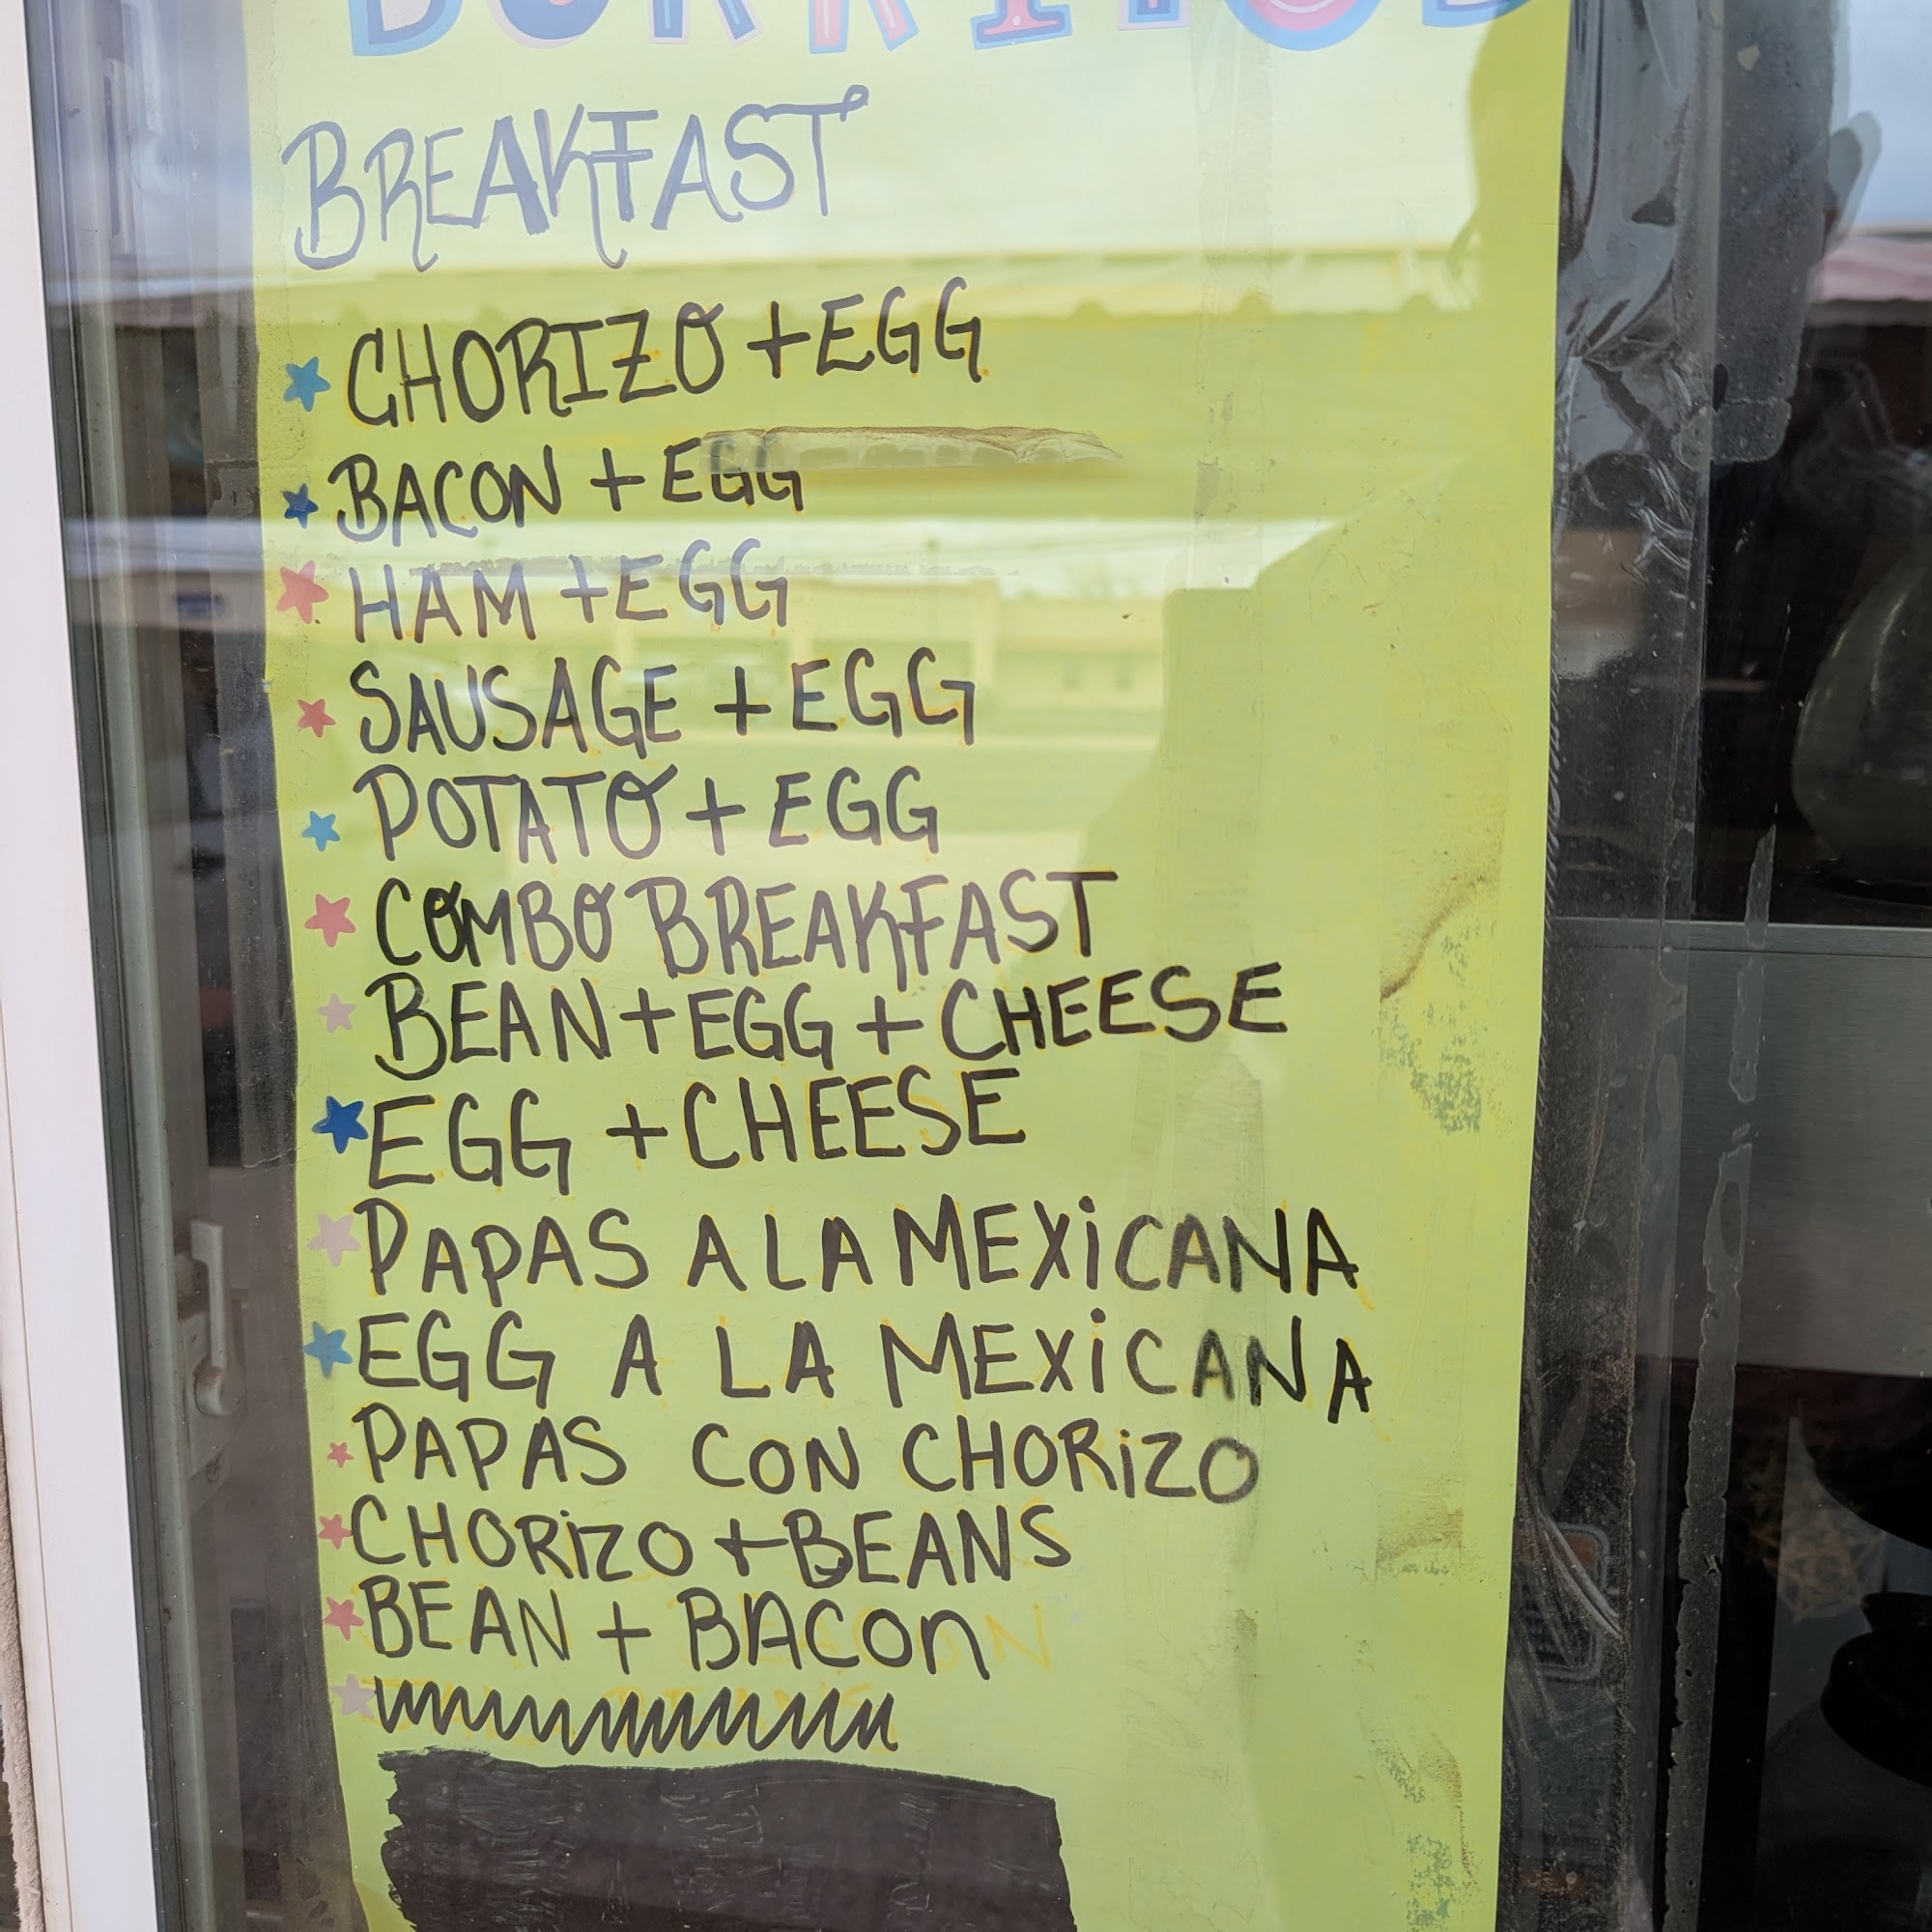 BURRITOS
BREAKFAST
CHORIZO + EGG
BACON + EGG
HAM + EGG
SAUSAGE + EGG
POTATO + EGG
COMBO BREAKFAST
BEAN + EGG + CHEESE
EGG + CHEESE
PAPAS A LA MEXiCANA
EGG A LA MEXiCANA
PAPAS CON CHORiZO
CHORiZO + BEANS
BEAN + BACON